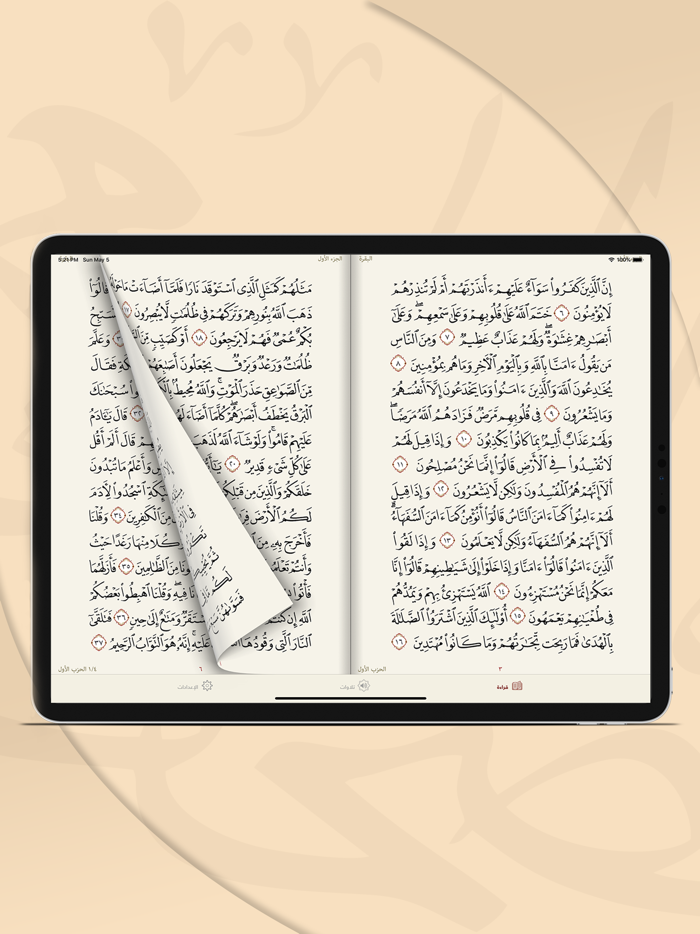 5:21 PM Sun May 5
100%
البقرة
إِنَّ ٱلَّذِينَ كَفَرُوا۟ سَوَآءٌ عَلَيْهِمْ ءَأَنذَرْتَهُمْ أَمْ لَمْ تُنذِرْهُمْ
لَا يُؤْمِنُونَ ٦ خَتَمَ ٱللَّهُ عَلَىٰ قُلُوبِهِمْ وَعَلَىٰ سَمْعِهِمْ ۖ وَعَلَىٰٓ
أَبْصَـٰرِهِمْ غِشَـٰوَةٌ ۖ وَلَهُمْ عَذَابٌ عَظِيمٌ ٧ وَمِنَ ٱلنَّاسِ
مَن يَقُولُ ءَامَنَّا بِٱللَّهِ وَبِٱلْيَوْمِ ٱلْـَٔاخِرِ وَمَا هُم بِمُؤْمِنِينَ ٨
يُخَـٰدِعُونَ ٱللَّهَ وَٱلَّذِينَ ءَامَنُوا۟ وَمَا يَخْدَعُونَ إِلَّآ أَنفُسَهُمْ
وَمَا يَشْعُرُونَ ٩ فِى قُلُوبِهِم مَّرَضٌ فَزَادَهُمُ ٱللَّهُ مَرَضًا ۖ
وَلَهُمْ عَذَابٌ أَلِيمٌۢ بِمَا كَانُوا۟ يَكْذِبُونَ ١٠ وَإِذَا قِيلَ لَهُمْ
لَا تُفْسِدُوا۟ فِى ٱلْأَرْضِ قَالُوٓا۟ إِنَّمَا نَحْنُ مُصْلِحُونَ ١١
أَلَآ إِنَّهُمْ هُمُ ٱلْمُفْسِدُونَ وَلَـٰكِن لَّا يَشْعُرُونَ ١٢ وَإِذَا قِيلَ
لَهُمْ ءَامِنُوا۟ كَمَآ ءَامَنَ ٱلنَّاسُ قَالُوٓا۟ أَنُؤْمِنُ كَمَآ ءَامَنَ ٱلسُّفَهَآءُ ۗ
أَلَآ إِنَّهُمْ هُمُ ٱلسُّفَهَآءُ وَلَـٰكِن لَّا يَعْلَمُونَ ١٣ وَإِذَا لَقُوا۟
ٱلَّذِينَ ءَامَنُوا۟ قَالُوٓا۟ ءَامَنَّا وَإِذَا خَلَوْا۟ إِلَىٰ شَيَـٰطِينِهِمْ قَالُوٓا۟ إِنَّا
مَعَكُمْ إِنَّمَا نَحْنُ مُسْتَهْزِءُونَ ١٤ ٱللَّهُ يَسْتَهْزِئُ بِهِمْ وَيَمُدُّهُمْ
فِى طُغْيَـٰنِهِمْ يَعْمَهُونَ ١٥ أُو۟لَـٰٓئِكَ ٱلَّذِينَ ٱشْتَرَوُا۟ ٱلضَّلَـٰلَةَ
بِٱلْهُدَىٰ فَمَا رَبِحَت تِّجَـٰرَتُهُمْ وَمَا كَانُوا۟ مُهْتَدِينَ ١٦
٣
الحزب الأول
الجزء الأول
مَثَلُهُمْ كَمَثَلِ ٱلَّذِى ٱسْتَوْقَدَ نَارًا فَلَمَّآ أَضَآءَتْ مَا قَالُوٓا۟
ذَهَبَ ٱللَّهُ بِنُورِهِمْ وَتَرَكَهُمْ فِى ظُلُمَـٰتٍ لَّا يُبْصِرُونَ
بُكْمٌ عُمْىٌ فَهُمْ لَا يَرْجِعُونَ ١٨ أَوْ كَصَيِّبٍ مِّنَ وَعَلَّمَ
ظُلُمَـٰتٌ وَرَعْدٌ وَبَرْقٌ يَجْعَلُونَ أَصَـٰبِعَهُمْ فَقَالَ
مِّنَ ٱلصَّوَٰعِقِ حَذَرَ ٱلْمَوْتِ ۚ وَٱللَّهُ مُحِيطٌۢ سُبْحَـٰنَكَ
ٱلْبَرْقُ يَخْطَفُ أَبْصَـٰرَهُمْ ۖ كُلَّمَآ أَضَآءَ قَالَ يَـٰٓـَٔادَمُ
عَلَيْهِمْ قَامُوا۟ ۚ وَلَوْ شَآءَ ٱللَّهُ لَذَهَبَ قَالَ أَلَمْ أَقُل
عَلَىٰ كُلِّ شَىْءٍ قَدِيرٌ ٢٠ وَأَعْلَمُ مَا تُبْدُونَ
خَلَقَكُمْ وَٱلَّذِينَ مِن قَبْلِكُمْ ٱسْجُدُوا۟ لِـَٔادَمَ
لَكُمُ ٱلْأَرْضَ مِنَ ٱلْكَـٰفِرِينَ ٣٤ وَقُلْنَا
فَأَخْرَجَ بِهِۦ مِنَ مِنْهَا رَغَدًا حَيْثُ
وَأَنتُمْ مِنَ ٱلظَّـٰلِمِينَ ٣٥ فَأَزَلَّهُمَا
فَأْتُوا۟ فِيهِ ۖ وَقُلْنَا ٱهْبِطُوا۟ بَعْضُكُمْ
ٱللَّهِ إِن مُسْتَقَرٌّ وَمَتَـٰعٌ إِلَىٰ حِينٍ ٣٦ فَتَلَقَّىٰٓ
ٱلنَّارَ ٱلَّتِى وَقُودُهَا عَلَيْهِ ۚ إِنَّهُۥ هُوَ ٱلتَّوَّابُ ٱلرَّحِيمُ ٣٧
٦
١/٤ الحزب الأول
قراءة
تلاوات
الإعدادات